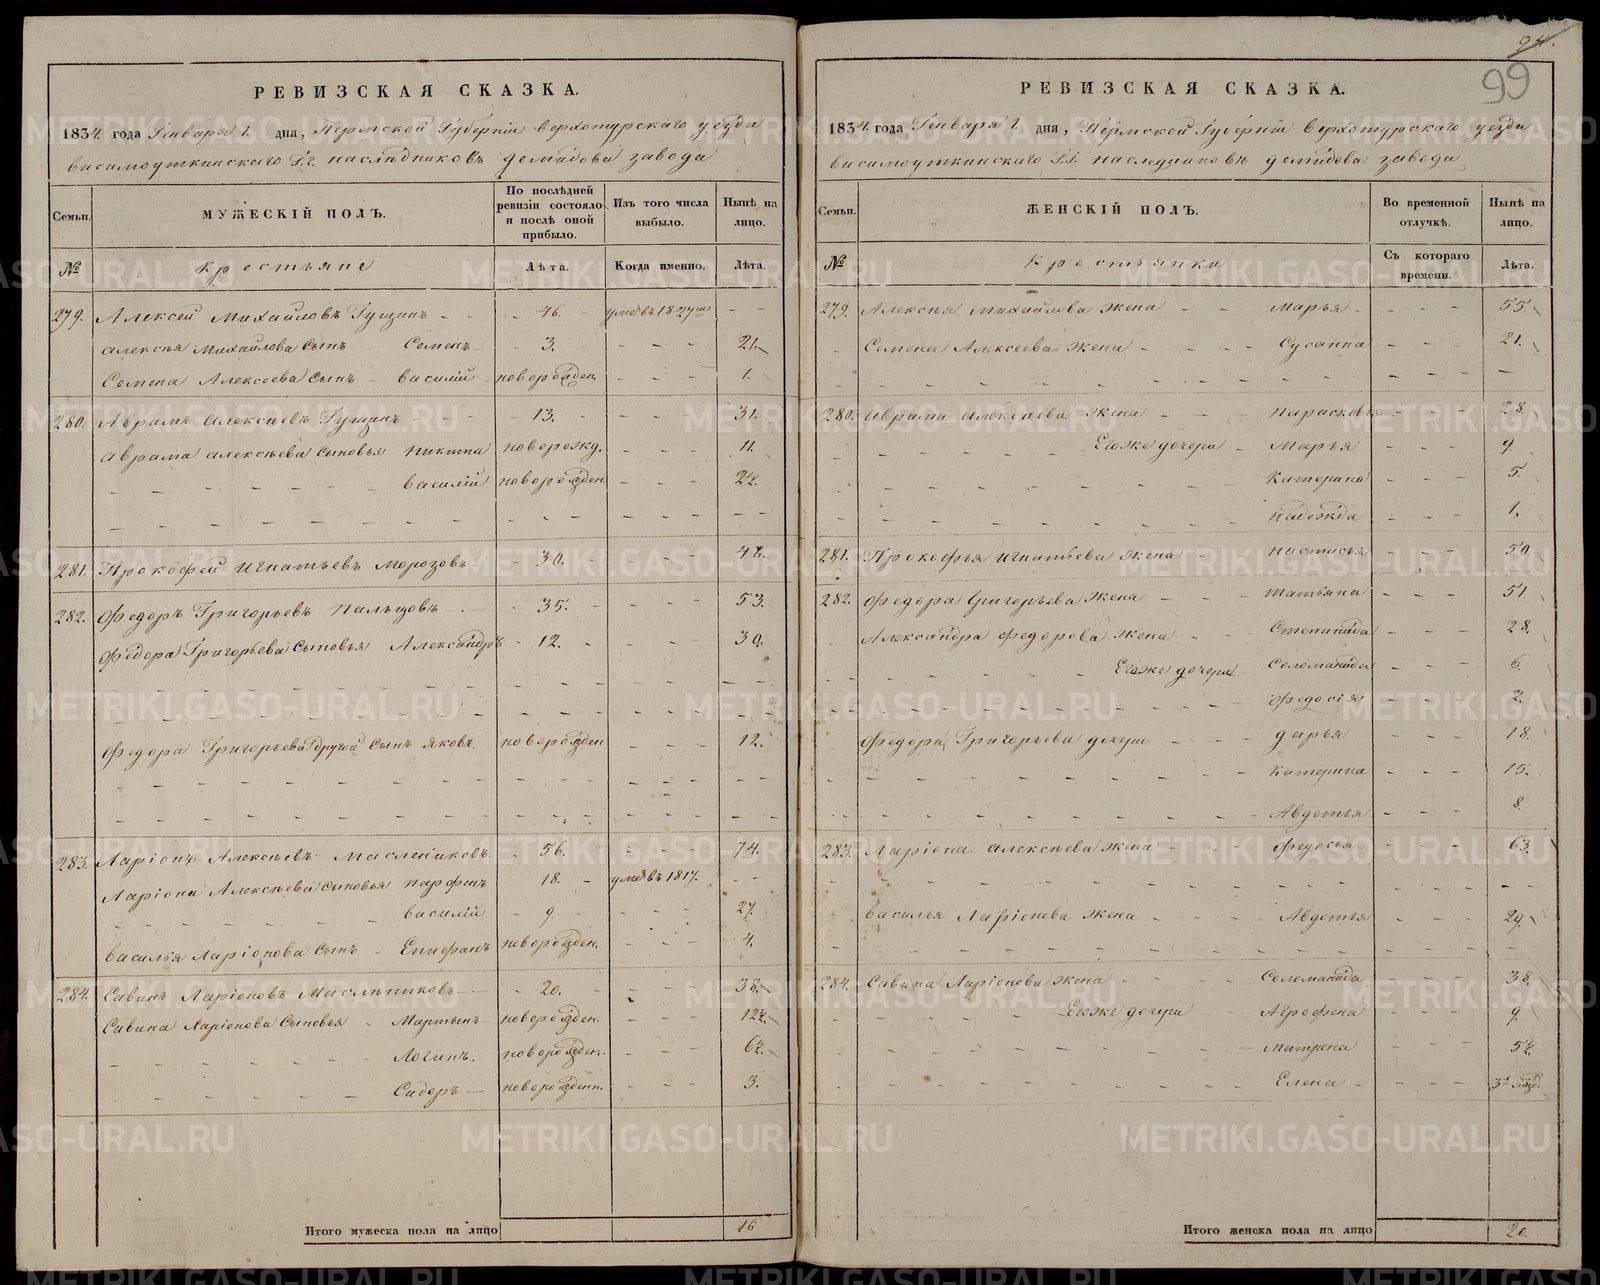 94.
99
РЕВИЗСКАЯ СКАЗКА.
1834. года Генваря 1. дня, Пермской Губернiи верхотурскаго уезда
висимоуткинскаго Г.Г. наслѣдниковъ демидова завода
Семьи. МУЖЕСКIЙ ПОЛЪ. По послѣдней ревизiи состояло и послѣ оной прибыло. Изъ того числа выбыло. Нынѣ на лицо.
№ Крестьяне Лѣта. Когда именно. Лѣта.
279. Алексей Михайловъ Гущинъ 46. умеръ въ 1827мъ
Алексѣя Михайлова Сынъ Семенъ 3. 21.
Семена Алексеева Сынъ Василiй новорожден. 1.
280. Аврамъ Алексѣевъ Гущинъ 13. 31.
Аврама Алексѣева Сыновья Никита новорожд. 11.
Василiй новорожден 2½.
281. Прокофей Игнатьевъ Морозовъ 30. 48.
282. Федоръ Григорьевъ Пальцовъ 35. 53.
Федора Григорьева Сыновья Александръ 12. 30.
Федора Григорьева другой Сынъ Яковъ. новорожден 12.
283. Ларiонъ Алексѣевъ Маслениковъ 56. 74.
Ларiона Алексѣева Сыновья Парфенъ 18. умеръ въ 1817.
Василiй 9. 27.
Василья Ларiонова Сынъ Епифанъ новорожден. 4.
284. Савинъ Ларiоновъ Маслѣниковъ 20. 38.
Савина Ларiонова Сыновья Мартынъ новорожден. 12½.
Логинъ. новорожден. 6½.
Сидоръ новорожденн. 3.
Итого мужеска пола на лицо 16
РЕВИЗСКАЯ СКАЗКА.
1834. года Генваря 1. дня, Пермской Губернiи верхотурскаго уезда
висимоуткинскаго Г.Г. наследниковъ демидова завода
Семьи. ЖЕНСКIЙ ПОЛЪ. Во временной отлучкѣ. Нынѣ на лицо.
№ Крестьянки Съ котораго времени. Лѣта.
279. Алексѣя Михайлова жена Марья 55.
Семена Алексеева жена Сусанна 21.
280. Аврама Алексѣева жена Парасковья 28.
Егоже дочери Марья 9
Катерина 5.
Надежда 1.
281. Прокофья Игнатьева жена Настасья 50.
282. Федора Григорьева жена Татьяна 51.
Александра Федорова жена Степанида 28.
Егоже дочери Соломанида 6.
Федосiя 2.
Федора Григорьева дочери Дарья 18.
Катерина 15.
Авдотья 8.
283. Ларiона Алексѣева жена Федосья 63.
Василья Ларiонова жена Авдотья 29.
284. Савина Ларiонова жена Соломанида 38.
Егоже дочери Агрофена 9.
Матрена 5½.
Елена
Итого женска пола на лицо 20.